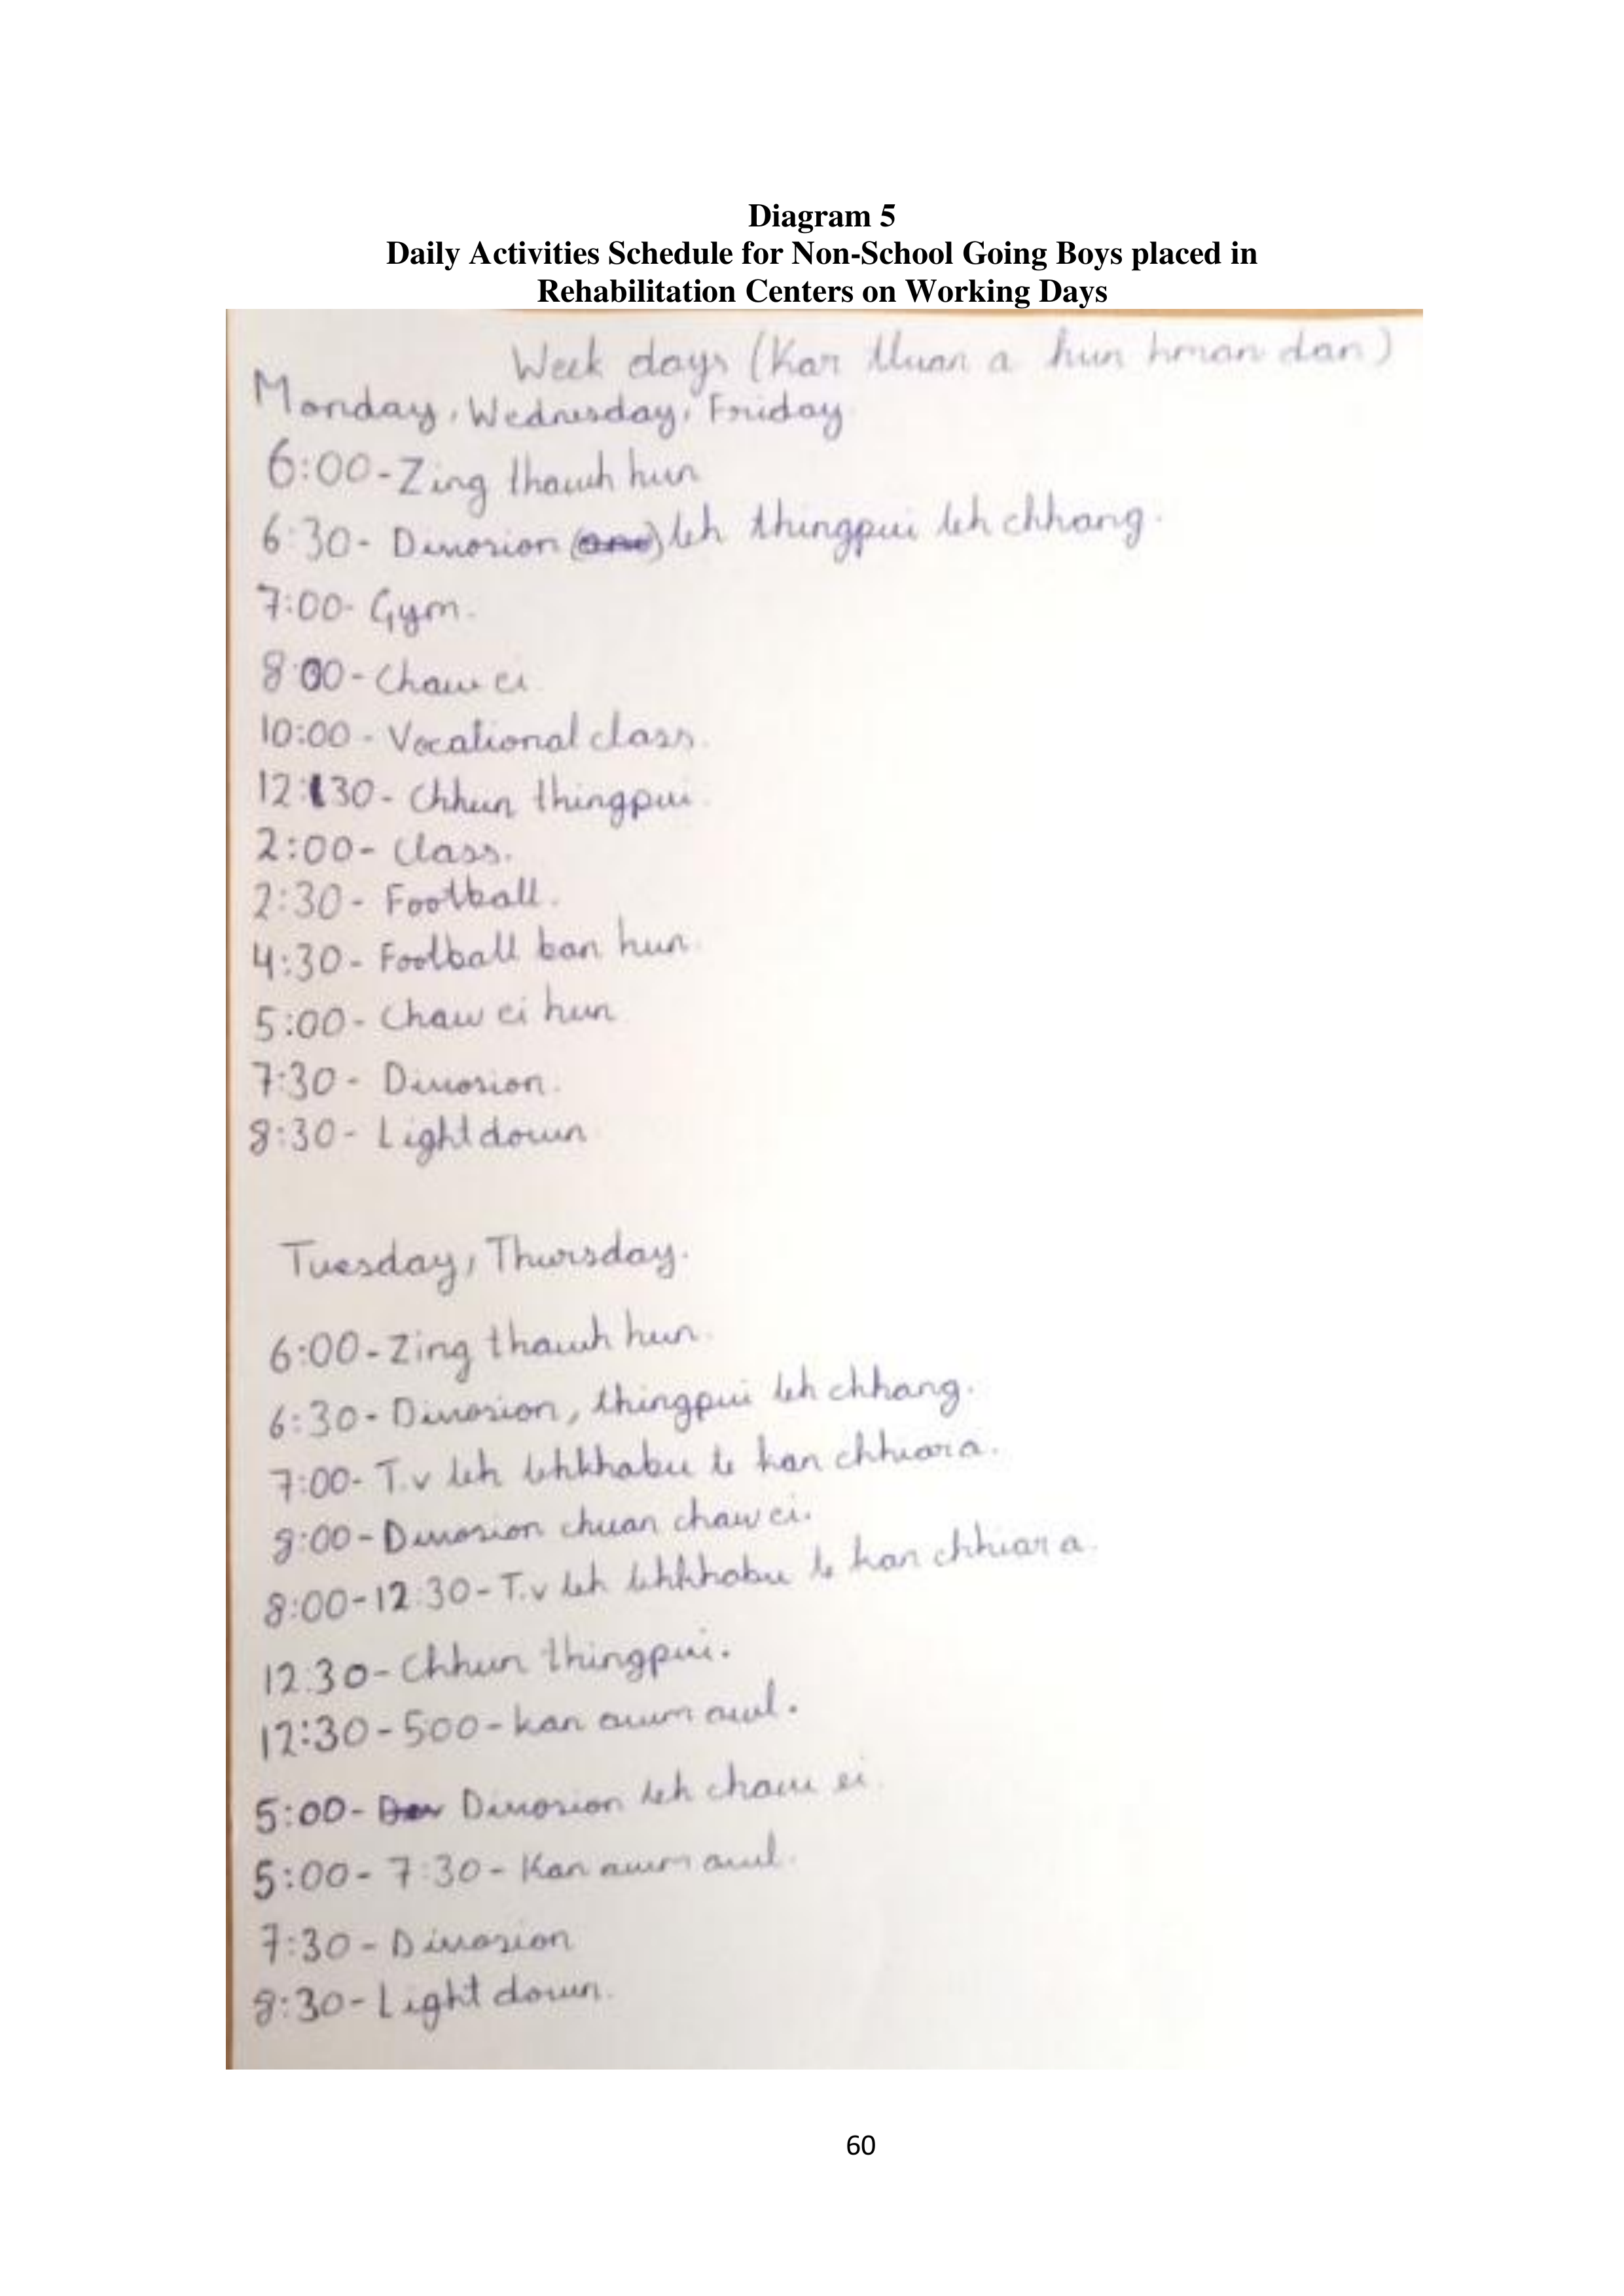 Diagram 5
Daily Activities Schedule for Non-School Going Boys placed in
Rehabilitation Centers on Working Days
Week days (Kar tluan a hun hman dan)
Monday, Wednesday, Friday
6:00 - Zing thawh hun
6:30 - Divosion leh thingpui leh chhang.
7:00 - Gym.
8:00 - Chaw ei
10:00 - Vocational class.
12:30 - Chhun thingpui.
2:00 - Class.
2:30 - Football.
4:30 - Football ban hun.
5:00 - Chaw ei hun
7:30 - Divosion.
8:30 - Light down
Tuesday, Thursday.
6:00 - Zing thawh hun.
6:30 - Divosion, thingpui leh chhang.
7:00 - T.v leh lehkhabu te kan chhiar a.
8:00 - Divosion chuan chaw ei.
8:00 - 12:30 - T.v leh lehkhabu te kan chhiar a.
12.30 - Chhun thingpui.
12:30 - 500 - kan awm awl.
5:00 - Divosion leh chaw ei.
5:00 - 7:30 - Kan awm awl.
7:30 - Divosion
8:30 - Light down.
60